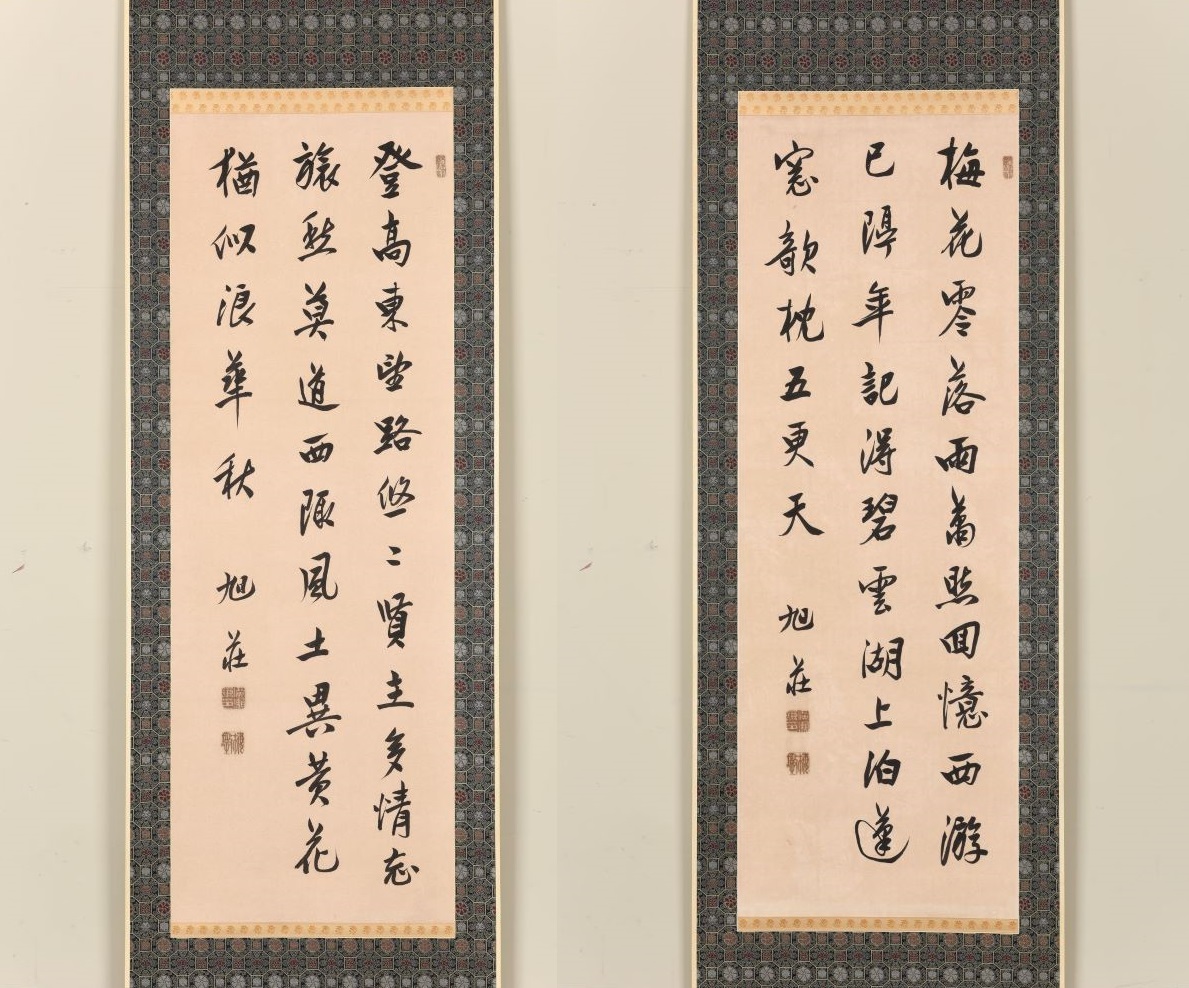 梅花零落雨蕭然回憶西游
已隔年記得碧雲湖上泊蓬
窓欹枕五更天 旭荘
登高東望路悠々賢主多情忘
旅愁莫道西陬風土異黄花
猶似浪華秋 旭荘